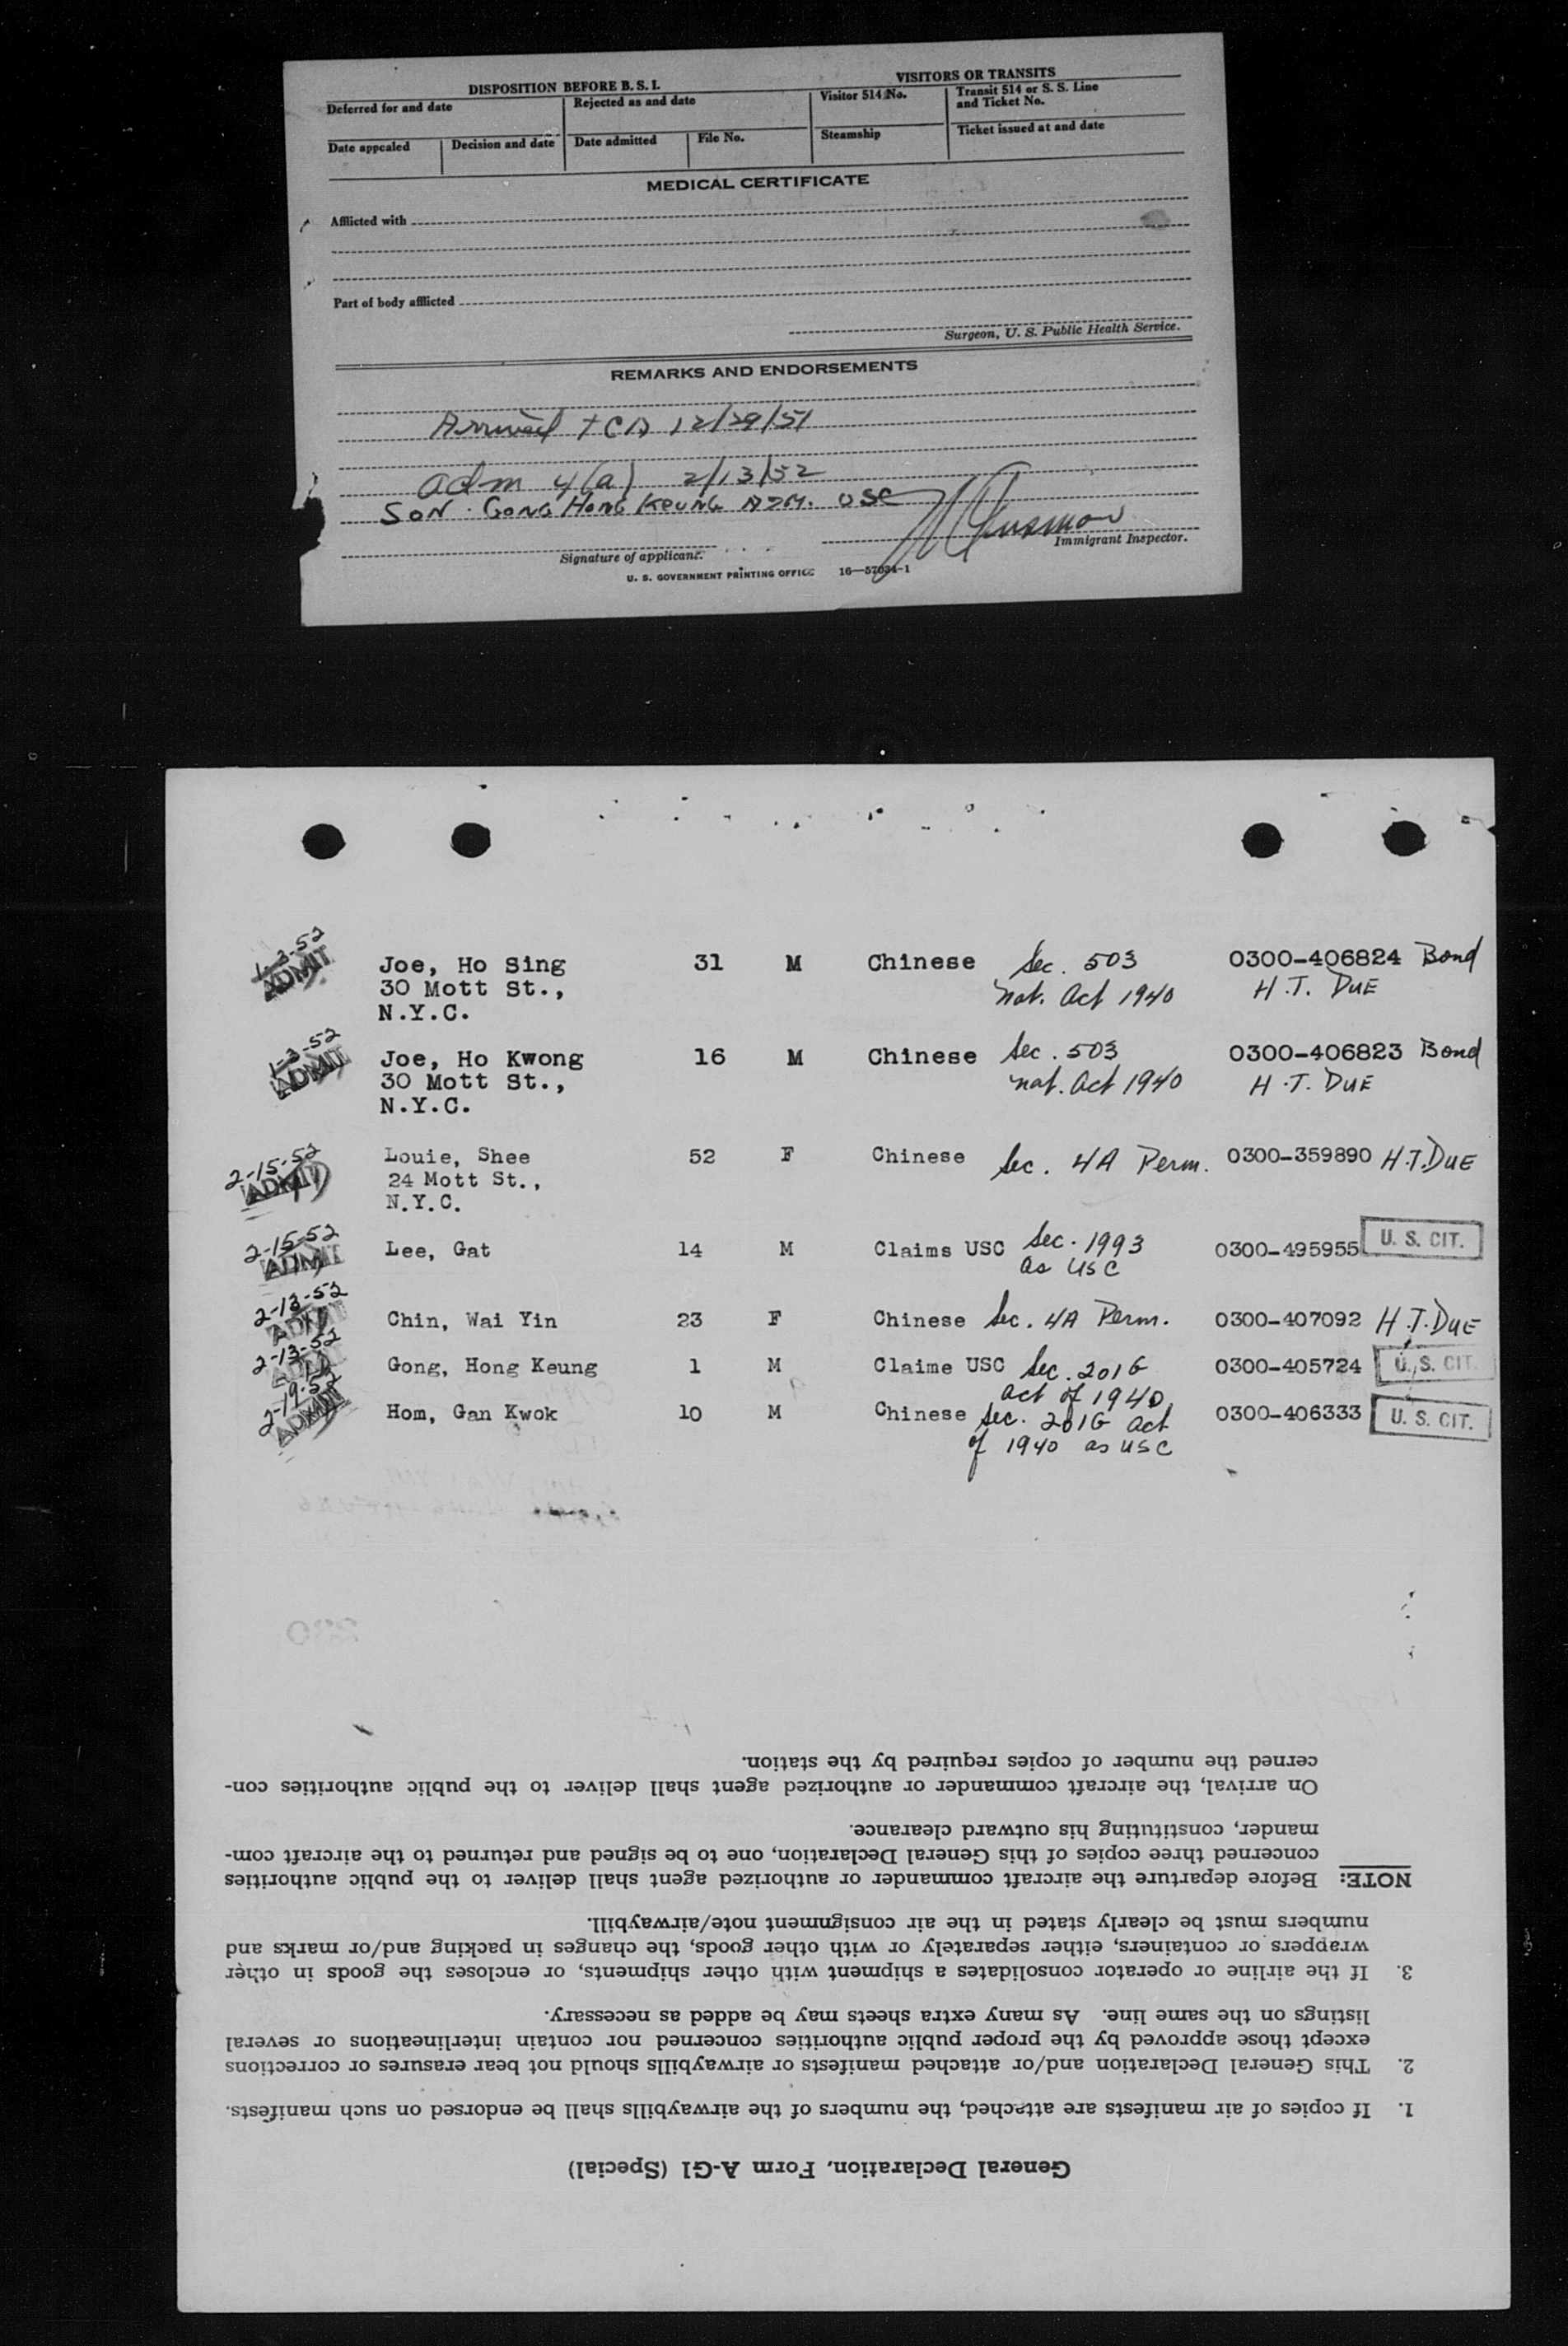 DISPOSITION BEFORE B. S. I.
VISITORS OR TRANSITS
Deferred for and date
Rejected as and date
Visitor 514 No.
Transit 514 or S. S. Line
and Ticket No.
Date appealed
Decision and date
Date admitted
File No.
Steamship
Ticket issued at and date
MEDICAL CERTIFICATE
Afflicted with
Part of body afflicted
Surgeon, U. S. Public Health Service.
REMARKS AND ENDORSEMENTS
Arrived TCA 12/29/51
adm 4(a) 2/13/52
SON. GONG HONG KEUNG ADM. USC
Signature of applicant.
Immigrant Inspector.
U. S. GOVERNMENT PRINTING OFFICE 16—57034-1
1-3-52
ADMIT
Joe, Ho Sing 31 M Chinese Sec. 503 0300-406824 Bond
30 Mott St., Nat. Act 1940 H.T. DUE
N.Y.C.
1-3-52
ADMIT
Joe, Ho Kwong 16 M Chinese Sec. 503 0300-406823 Bond
30 Mott St., Nat. Act 1940 H.T. DUE
N.Y.C.
2-15-52
ADMIT
Louie, Shee 52 F Chinese Sec. 4A Perm. 0300-359890 H.T. DUE
24 Mott St.,
N.Y.C.
2-15-52
ADMIT
Lee, Gat 14 M Claims USC Sec. 1993 0300-495955 U. S. CIT.
as USC
2-13-52
ADMIT
Chin, Wai Yin 23 F Chinese Sec. 4A Perm. 0300-407092 H.T. DUE
2-13-52
Gong, Hong Keung 1 M Claime USC Sec. 201G 0300-405724 U. S. CIT.
Act of 1940
2-19-52
ADMIT
Hom, Gan Kwok 10 M Chinese Sec. 201G Act 0300-406333 U. S. CIT.
of 1940 as USC
General Declaration, Form A-G1 (Special)
1. If copies of air manifests are attached, the numbers of the airwaybills shall be endorsed on such manifests.
2. This General Declaration and/or attached manifests or airwaybills should not bear erasures or corrections
except those approved by the proper public authorities concerned nor contain interlineations or several
listings on the same line. As many extra sheets may be added as necessary.
3. If the airline or operator consolidates a shipment with other shipments, or encloses the goods in other
wrappers or containers, either separately or with other goods, the changes in packing and/or marks and
numbers must be clearly stated in the air consignment note/airwaybill.
NOTE: Before departure the aircraft commander or authorized agent shall deliver to the public authorities
concerned three copies of this General Declaration, one to be signed and returned to the aircraft com-
mander, constituting his outward clearance.
On arrival, the aircraft commander or authorized agent shall deliver to the public authorities con-
cerned the number of copies required by the station.